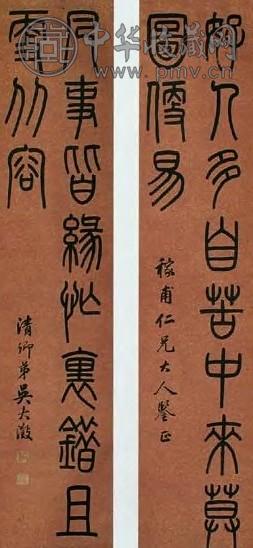 中华收藏网
www.pmv.cn
好人多自苦中來莫
圖便易
稼甫仁兄大人鑒正
凡事皆緣忙裏錯且
更从容
清卿弟吳大澂